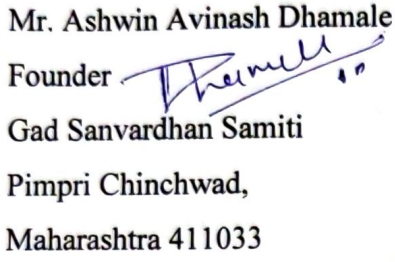 Mr. Ashwin Avinash Dhamale
Founder
Gad Sanvardhan Samiti
Pimpri Chinchwad,
Maharashtra 411033